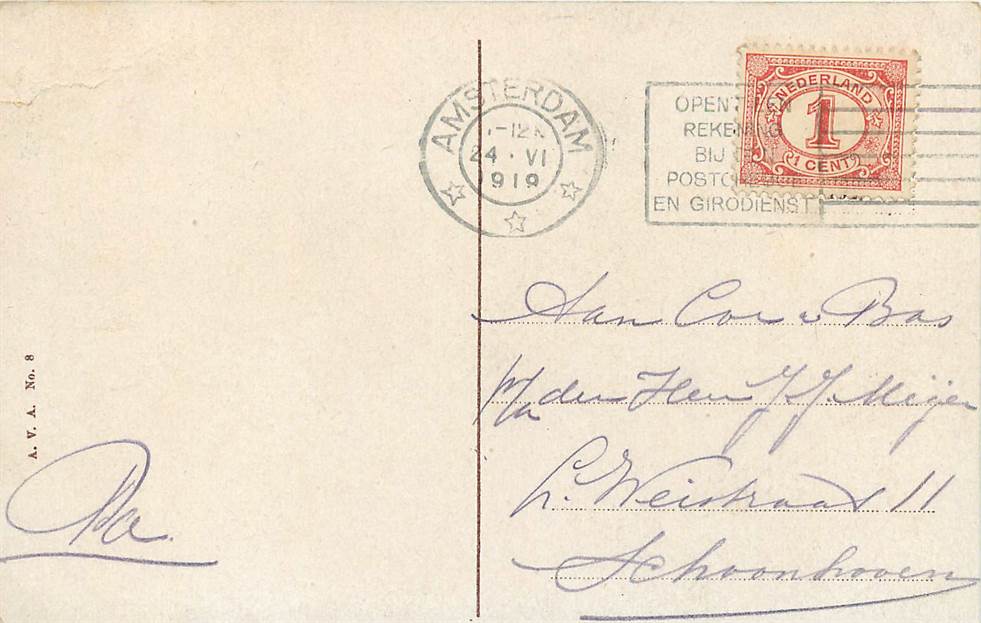 AMSTERDAM
-12
24 · VI
1919
OPENT EEN
REKENING
BIJ
POSTC
EN GIRODIENST
NEDERLAND
1
1 CENT
Aan Cor v Bas
p/a den Heer J. J. Meijer
L. Weistraat 11
Schoonhoven
A. V. A. No. 8
Pa.